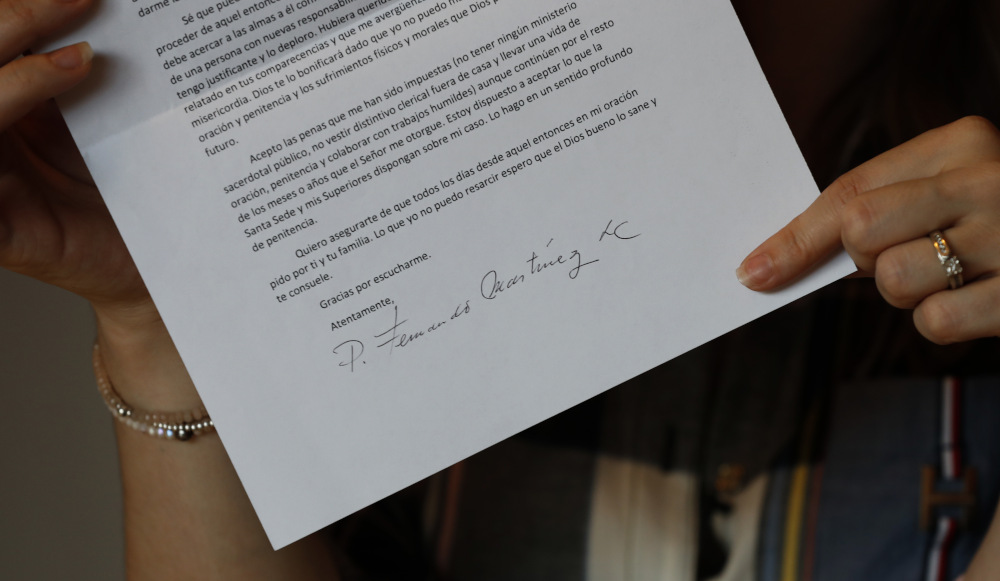 darme
Sé que
proceder de aquel
debe acercar a las almas a él
de una persona con nuevas
tengo justificante y lo deploro. Hubiera
relatado en tus comparecencias y que me
misericordia. Dios te lo bonificará dado que yo no puedo
oración y penitencia y los sufrimientos físicos y morales que Dios
futuro.
Acepto las penas que me han sido impuestas (no tener ningún ministerio
sacerdotal público, no vestir distintivo clerical fuera de casa y llevar una vida de
oración, penitencia y colaborar con trabajos humildes) aunque continúen por el resto
de los meses o años que el Señor me otorgue. Estoy dispuesto a aceptar lo que la
Santa Sede y mis Superiores dispongan sobre mi caso. Lo hago en un sentido profundo
de penitencia.
Quiero asegurarte de que todos los días desde aquel entonces en mi oración
pido por ti y tu familia. Lo que yo no puedo resarcir espero que el Dios bueno lo sane y
te consuele.
Gracias por escucharme.
Atentamente,
P. Fernando Martínez LC